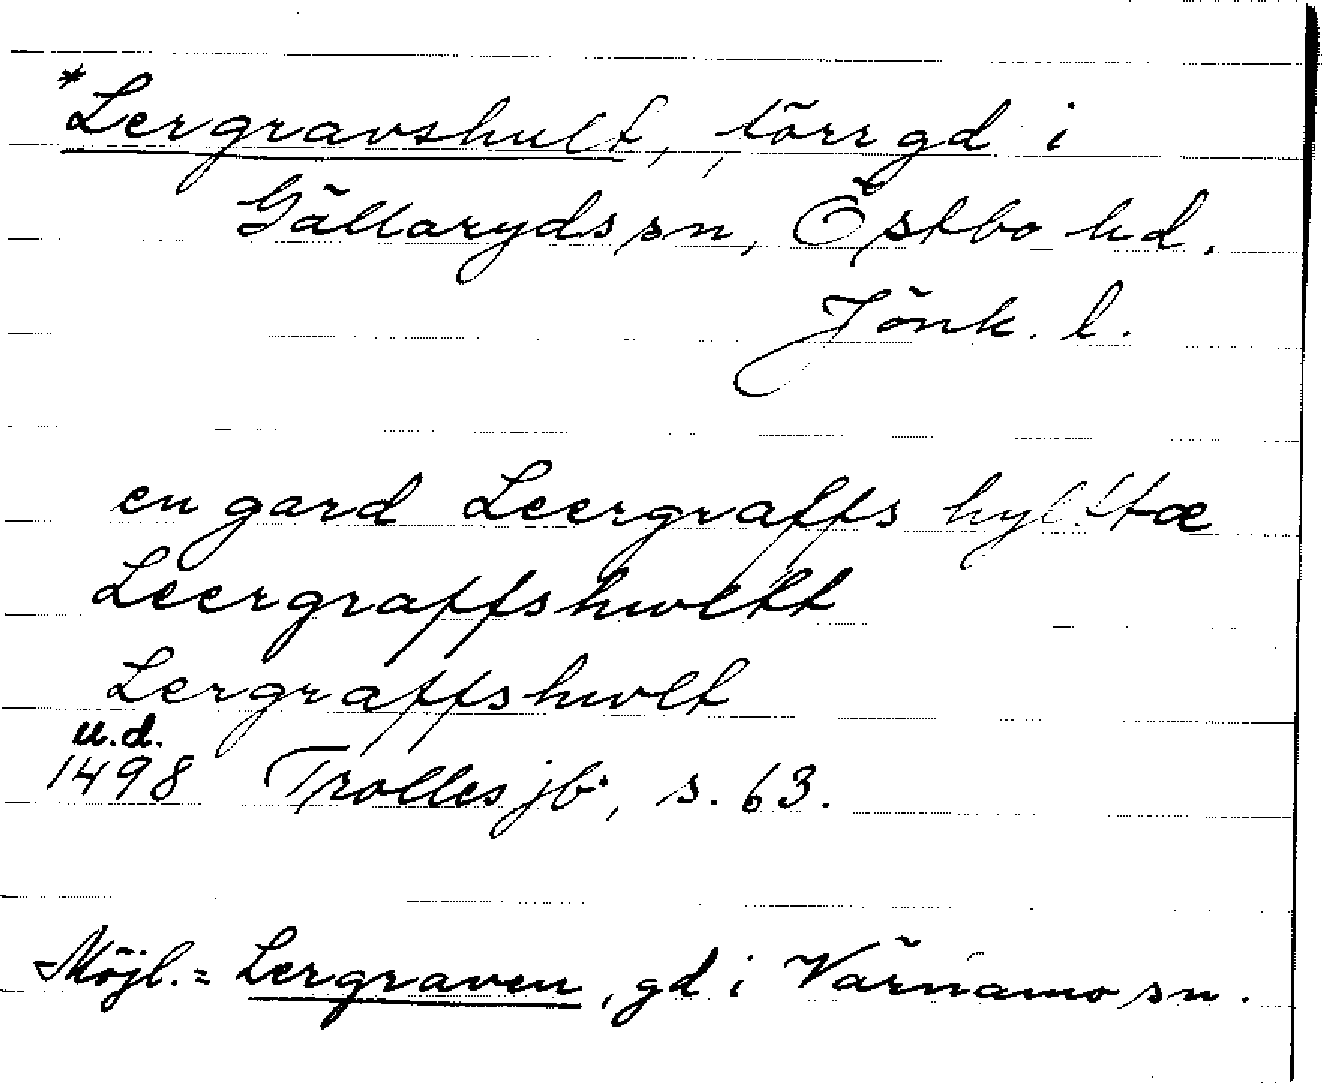 *Lergravshult, förr gd i
Gällaryds sn, Östbo hd.
Jönk. l.
en gard Leergraffs hylttæ
Leergraffshwltt
Lergraffshwlt
u.d.
1498 Trolles jb., s. 63.
Möjl. = Lergraven, gd i Värnamo sn.